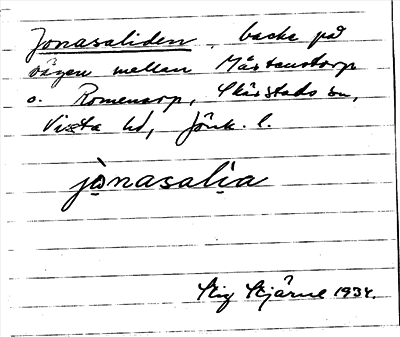 Jonasaliden, backe på
vägen mellan Mårtenstorp
o. Romenarp, Skärstads sn,
Vista hd, Jönk. l.
jònasalia
Stig Stjärne 1934.